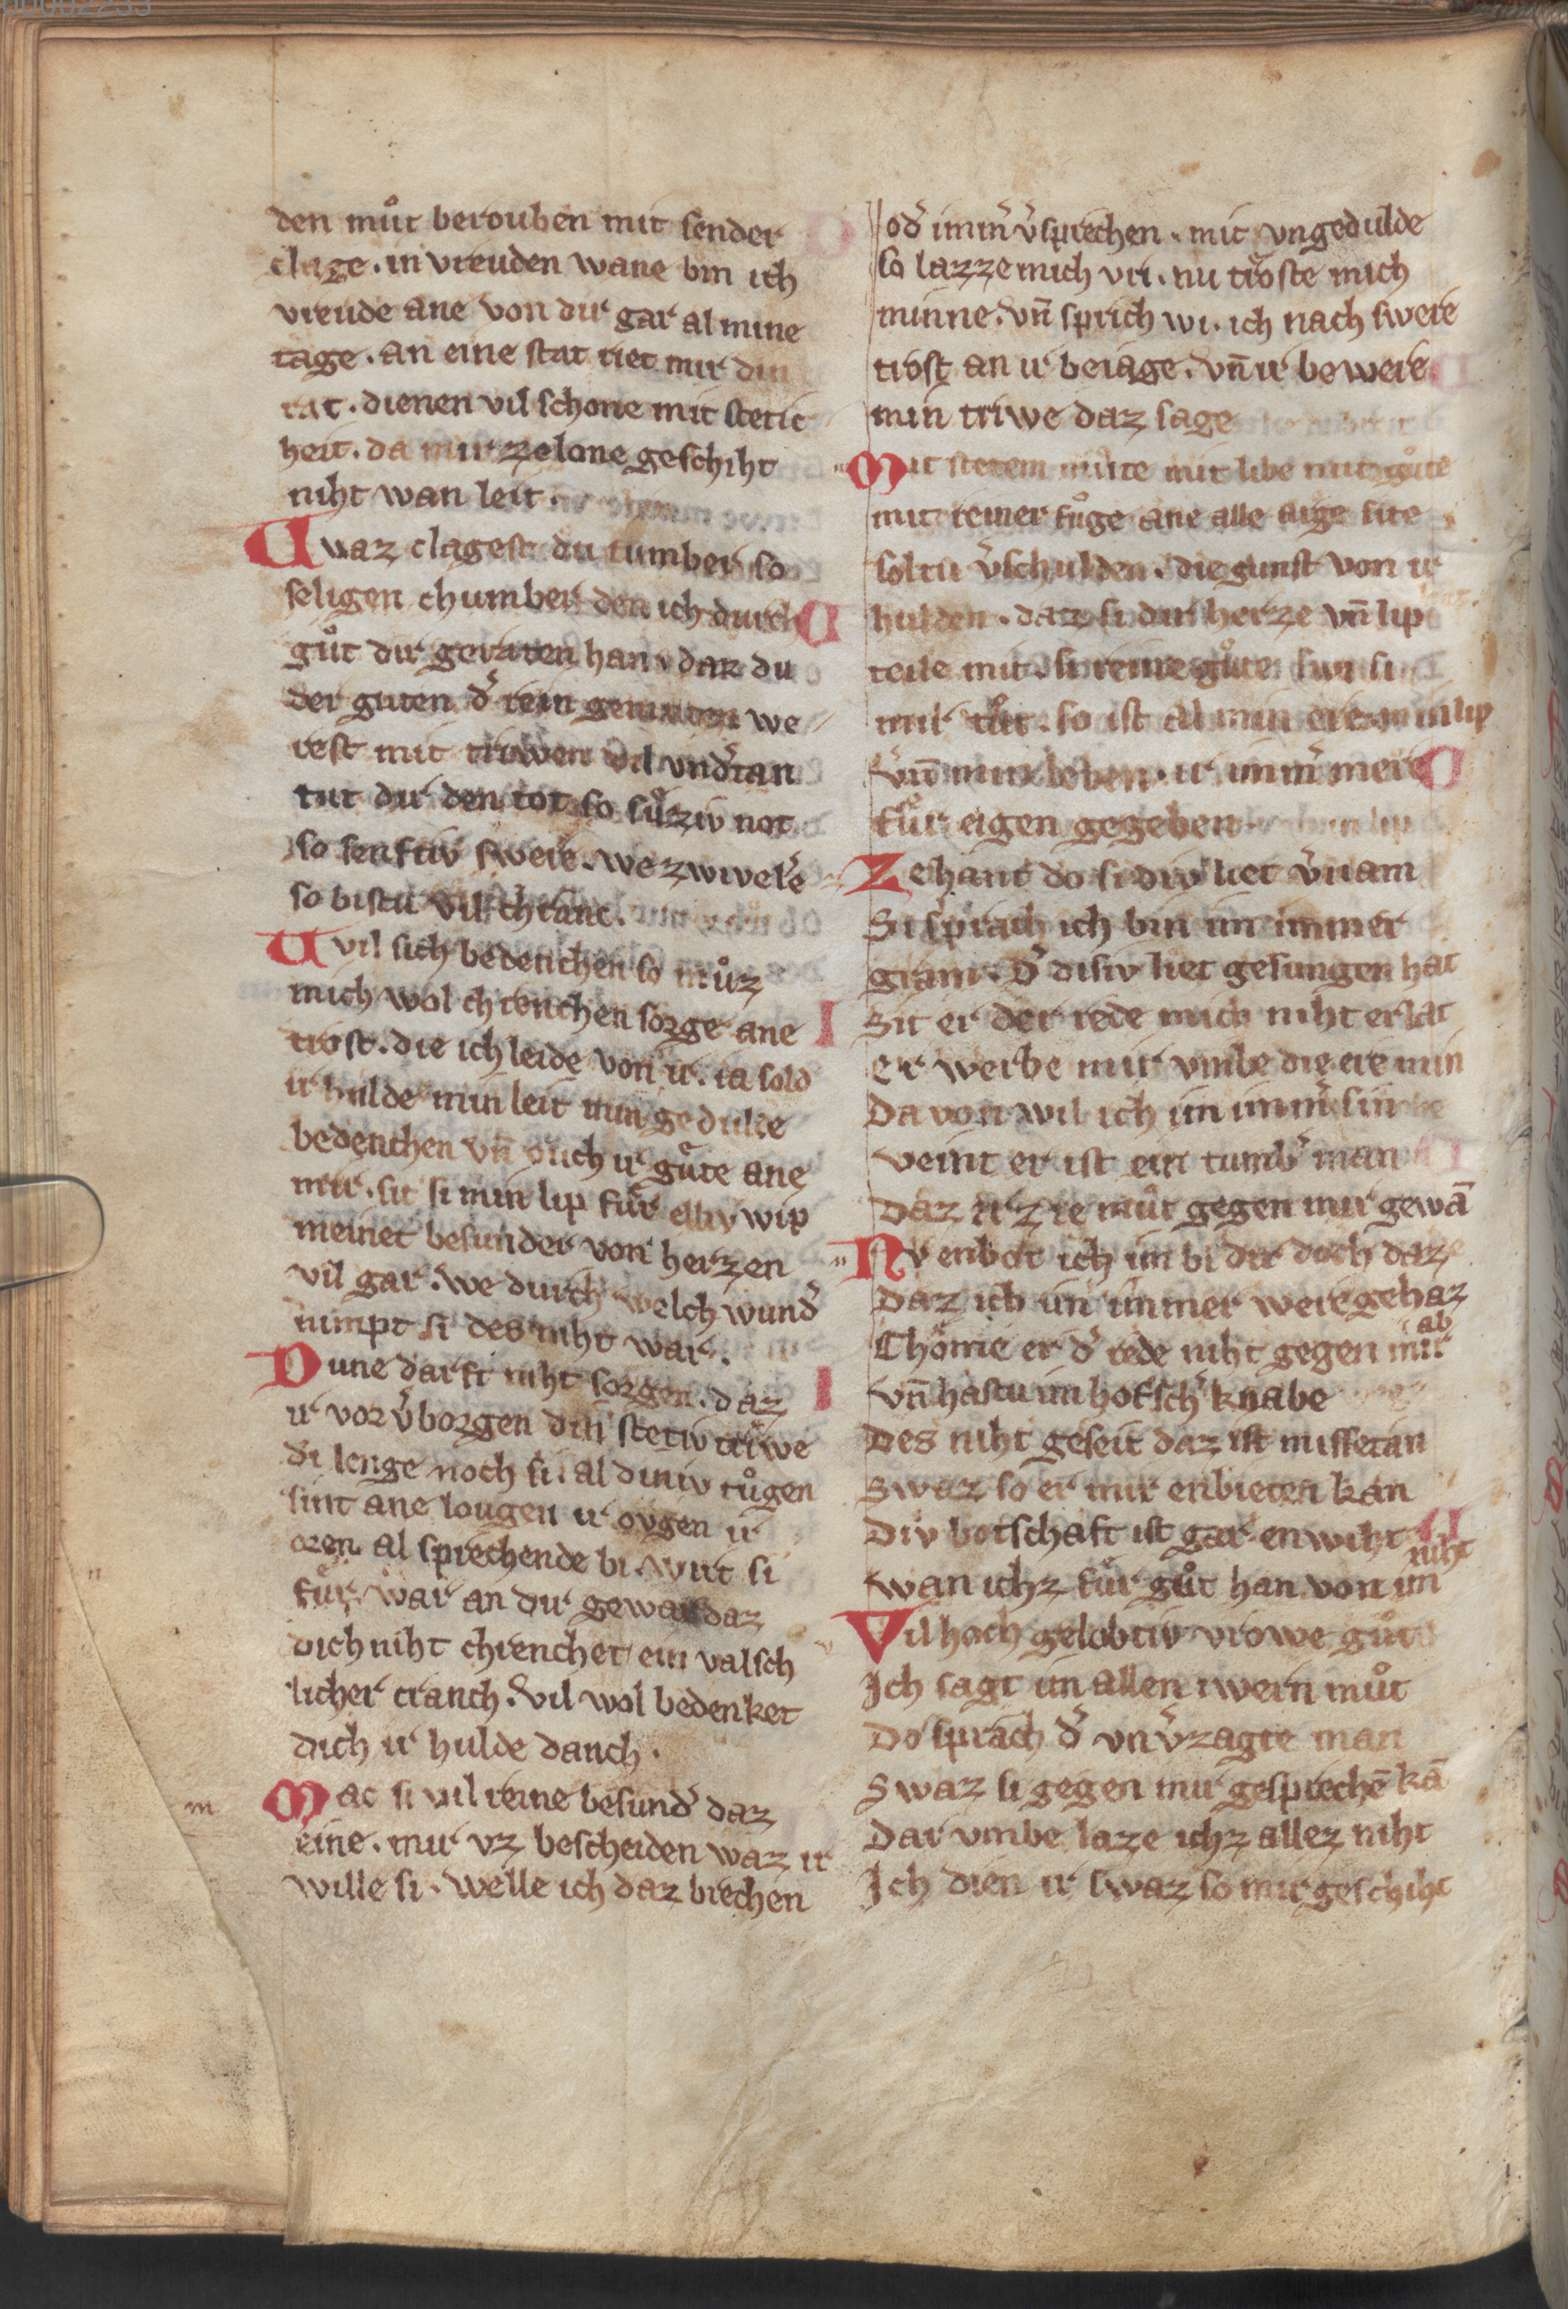 den můt berouben mit sender
clage. in vreuden wane bin ich
vreude ane von dir gar al mine
tage. an eine stat riet mir din
rat. dienen vil schone mit stetic
heit. da mir zelone geschiht
niht wan leit.
Waz clagest du tumber so
seligen chumber den ich durch
gůt dir geraten han. daz du
der guten d̕ rein gemuten we
rest mit triwen vil vnd̕tan
tut dir den tot so sůziv not
so senftiv swere. we zwivelere
so bistu vil chranc.
Wil sich bedenchen so můz
mich wol chrenchen sorge ane
trost. die ich leide von ir. ia sold
ir hulde min leit min gedulde
bedenchen vn̄ ouch ir gůte ane
mir. sit si min lip fůr elliv wip
meinet besunder von herzen
vil gar. we durch welch wund̕
nimpt si des niht war.
Dune darft niht sorgen. daz
ir vor v̕borgen din stetiv triwe
di lenge noch si. al diniv tůgen
sint ane lougen ir oygen ir
oren al sprechende bi. wirt si
fůr war an dir gewar daz
dich niht chrenchet ein valsch
licher cranch. vil wol bedenket
dich ir hulde danch.
m
Mac si vil reine besund̕ daz
eine. mir vz bescheiden waz ir
wille si. welle ich daz brechen
od̕ imm̕ v̕sprechen. mit vngedulde
so lazze mich vri. nu troste mich
minne. vn̄ sprich wi. ich nach swere
trost an ir beiage. vn̄ ir bewere
min triwe daz sage
Mit stetem můte mit libe mit gůte
mit reiner fůge ane alle
soltu v̕schulden. die gunst von ir
hulden. daz si din herze vn̄ lip
teile mit. si reine gůte swi si
mir tůt. so ist al min ere min lip
vn̄ min leben. ir imm̕ mere
fůr eigen gegeben
Zehant do si div liet v̕nam
Si sprach ich bin im immer
gram. d̕ disiv liet gesungen hat
Sit er der rede mich niht erlat
er werbe mir vmbe die ere min
Da von wil ich im imm̕ sin
veint er ist ein tumb̕ man
Daz ir ie můt gegen mir gewā
Nv enbot ich im bi dir doch daz
Daz ich im immer were gehaz
ab
Chome er d̕ rede niht gegen mir
vn̄ hastu im hofsch̕ knabe
Des niht geseit daz ist missetan
Swaz so er mir enbieten kan
Div botschaft ist gar enwiht
niht
wan ichz fůr gůt han von im
Vil hoch gelobtiv vrowe gůt
Ich sagt im allen iwern můt
Do sprach d̕ vnv̕zagte man
Swaz si gegen mir gesprechē kā
Dar vmbe laze ichz allez niht
Ich dien ir swaz so mir geschiht